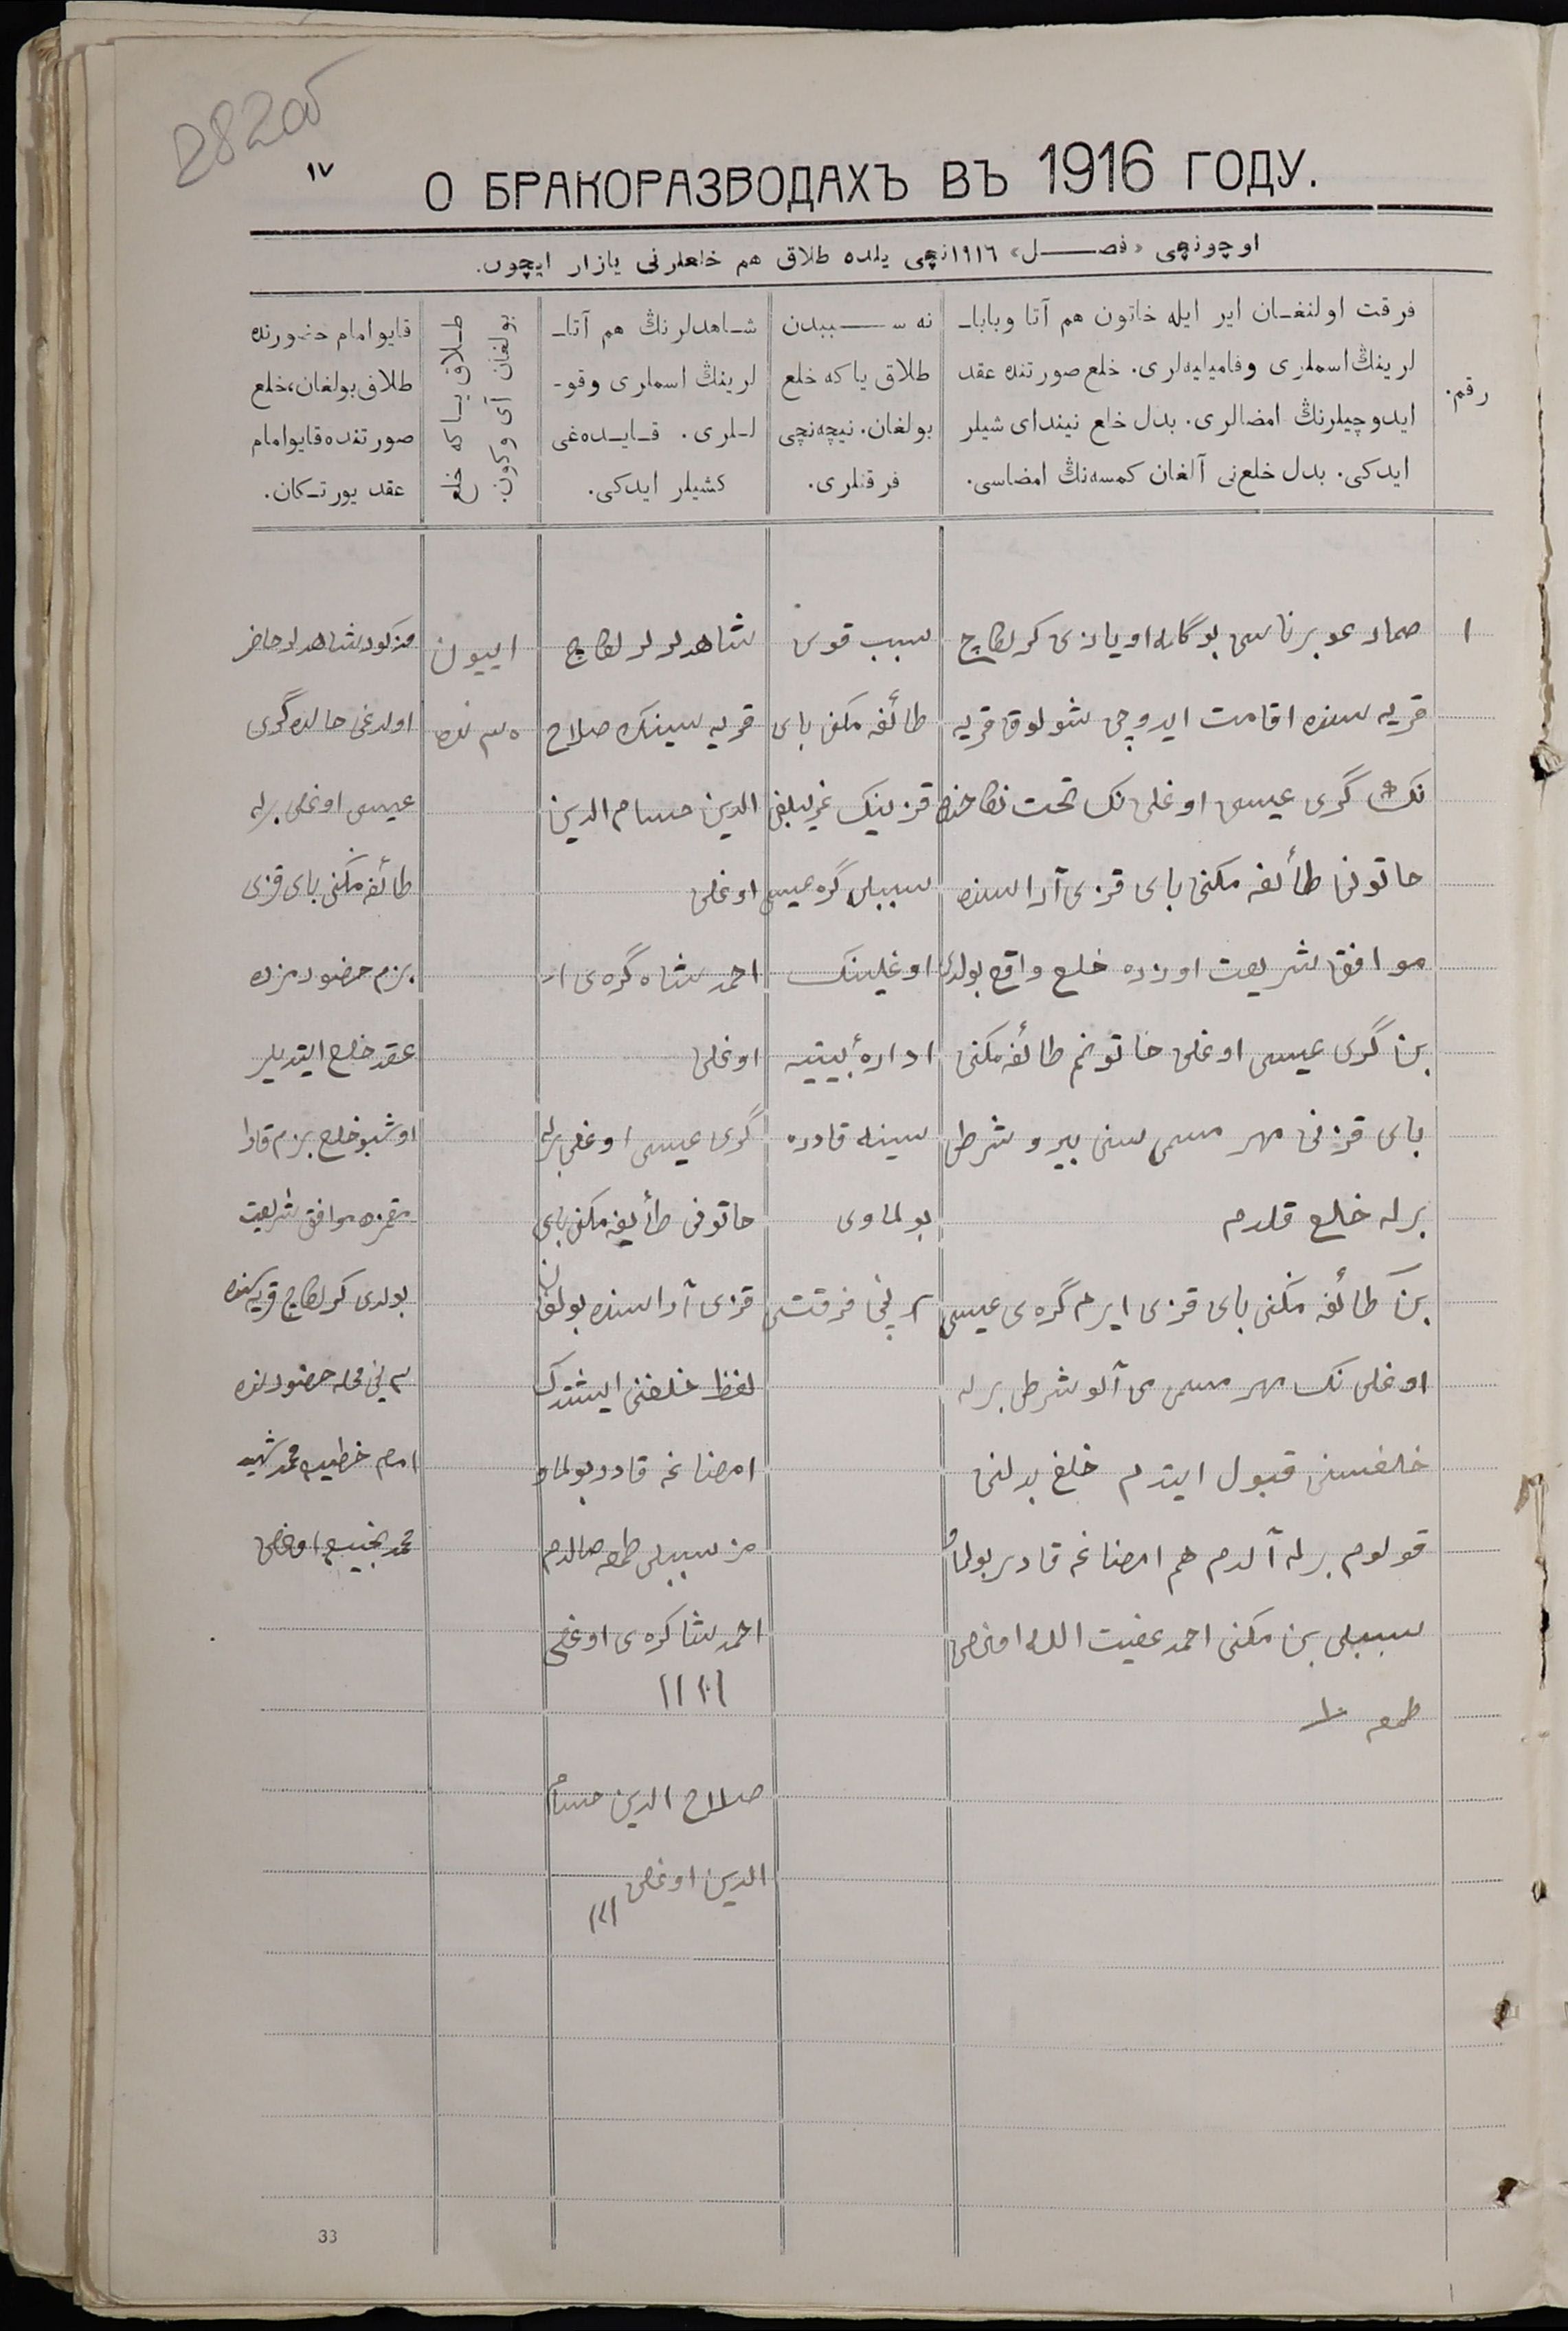 282об
١٧
О БРАКОРАЗВОДАХЪ ВЪ 1916 ГОДУ.
اوچونچی «فصـــل» ١٩١٦نچی یلده طلاق هم خلعلرنی یازار ایچون.
رقم.
فرقت اولنغـان ایر ایله خاتون هم آتا وبابا-
لرینڭ اسملری وفامیلیه‌لری. خلع صورتنده عقد
ایدوچیلرنڭ امضالری. بدل خلع نیندای شیلر
ایدکی. بدل خلع‌نی آلغان کمسه‌نڭ امضاسی.
نه ســـببدن
طلاق یا که خلع
بولغان. نیچه‌نچی
فرقتلری.
شـاهدلرنڭ هم آتا-
لرینڭ اسملری وقو-
لـلری. قـایـده‌غی
کشیلر ایدکی.
طـلاق یـا که خلع
بولغان آی وکون.
قایو امام حضورنده
طلاق بولغان، خلع
صورتنده قایو امام
عقد یورتـکان.
١
بوگلمه اویازی کرلکاچ
قریه سنده اقامت ایدوچی شولوق قریه
نک گری عیسی اوغلی نک تحت نکاحنده
خاتونی طائفه مکنی بای قزی آراسنده
موافق شریعت اوزره خلع واقع بولدی
بن گری عیسی اوغلی خاتونم طائفه مکنی
بای قزنی مهر مسمی سنی بیرو شرطی
برله خلع قلدم
بن طائفه مکنی بای قزی ایرم گره‌ی عیسی
اوغلی نک مهر مسمی می آلو شرطی برله
خلعسنی قبول ایتدم خلع بدلنی
قولوم برله آلدم هم امضاغه قادر بولماو
سببلی بن مکنی احمد
طمغه
سبب قوی
طائفه مکنی بای
قزینیک
سببلی گره عیسی
اوغلینک
اداره بیتیه
سینه قادره
بولماوی
٢ نچی فرقتی
شاهدلر کرلکاچ
قریه سینک صلاح
الدین حسام الدین
اوغلی
احمد شاه گره‌ی
اوغلی
گری عیسی اوغلی برله
خاتونی طائفه مکنی بای
قزی آراسنده بولغان
لفظ خلعنی ایشتدک
امضاغه قادر بولماو
مز سببلی طمغه صالدم
احمد شا گره‌ی اوغلی
صلاح الدین حسام
الدین اوغلی
اییون
٥ سنده
مذکور شاهدلر حاضر
اولدغی حالده گری
عیسی اوغلی برله
طائفه مکنی بای قزی
بزم حضورمزده
عقد خلع ایتدیلر
اوشبو خلع بزم قارا
مقمزده موافق شریعت
بولدی کرلکاچ قریه سنده
٣ نچی محله حضورنده
امام خطیب محمد شهید
محمد نجیب اوغلی
33